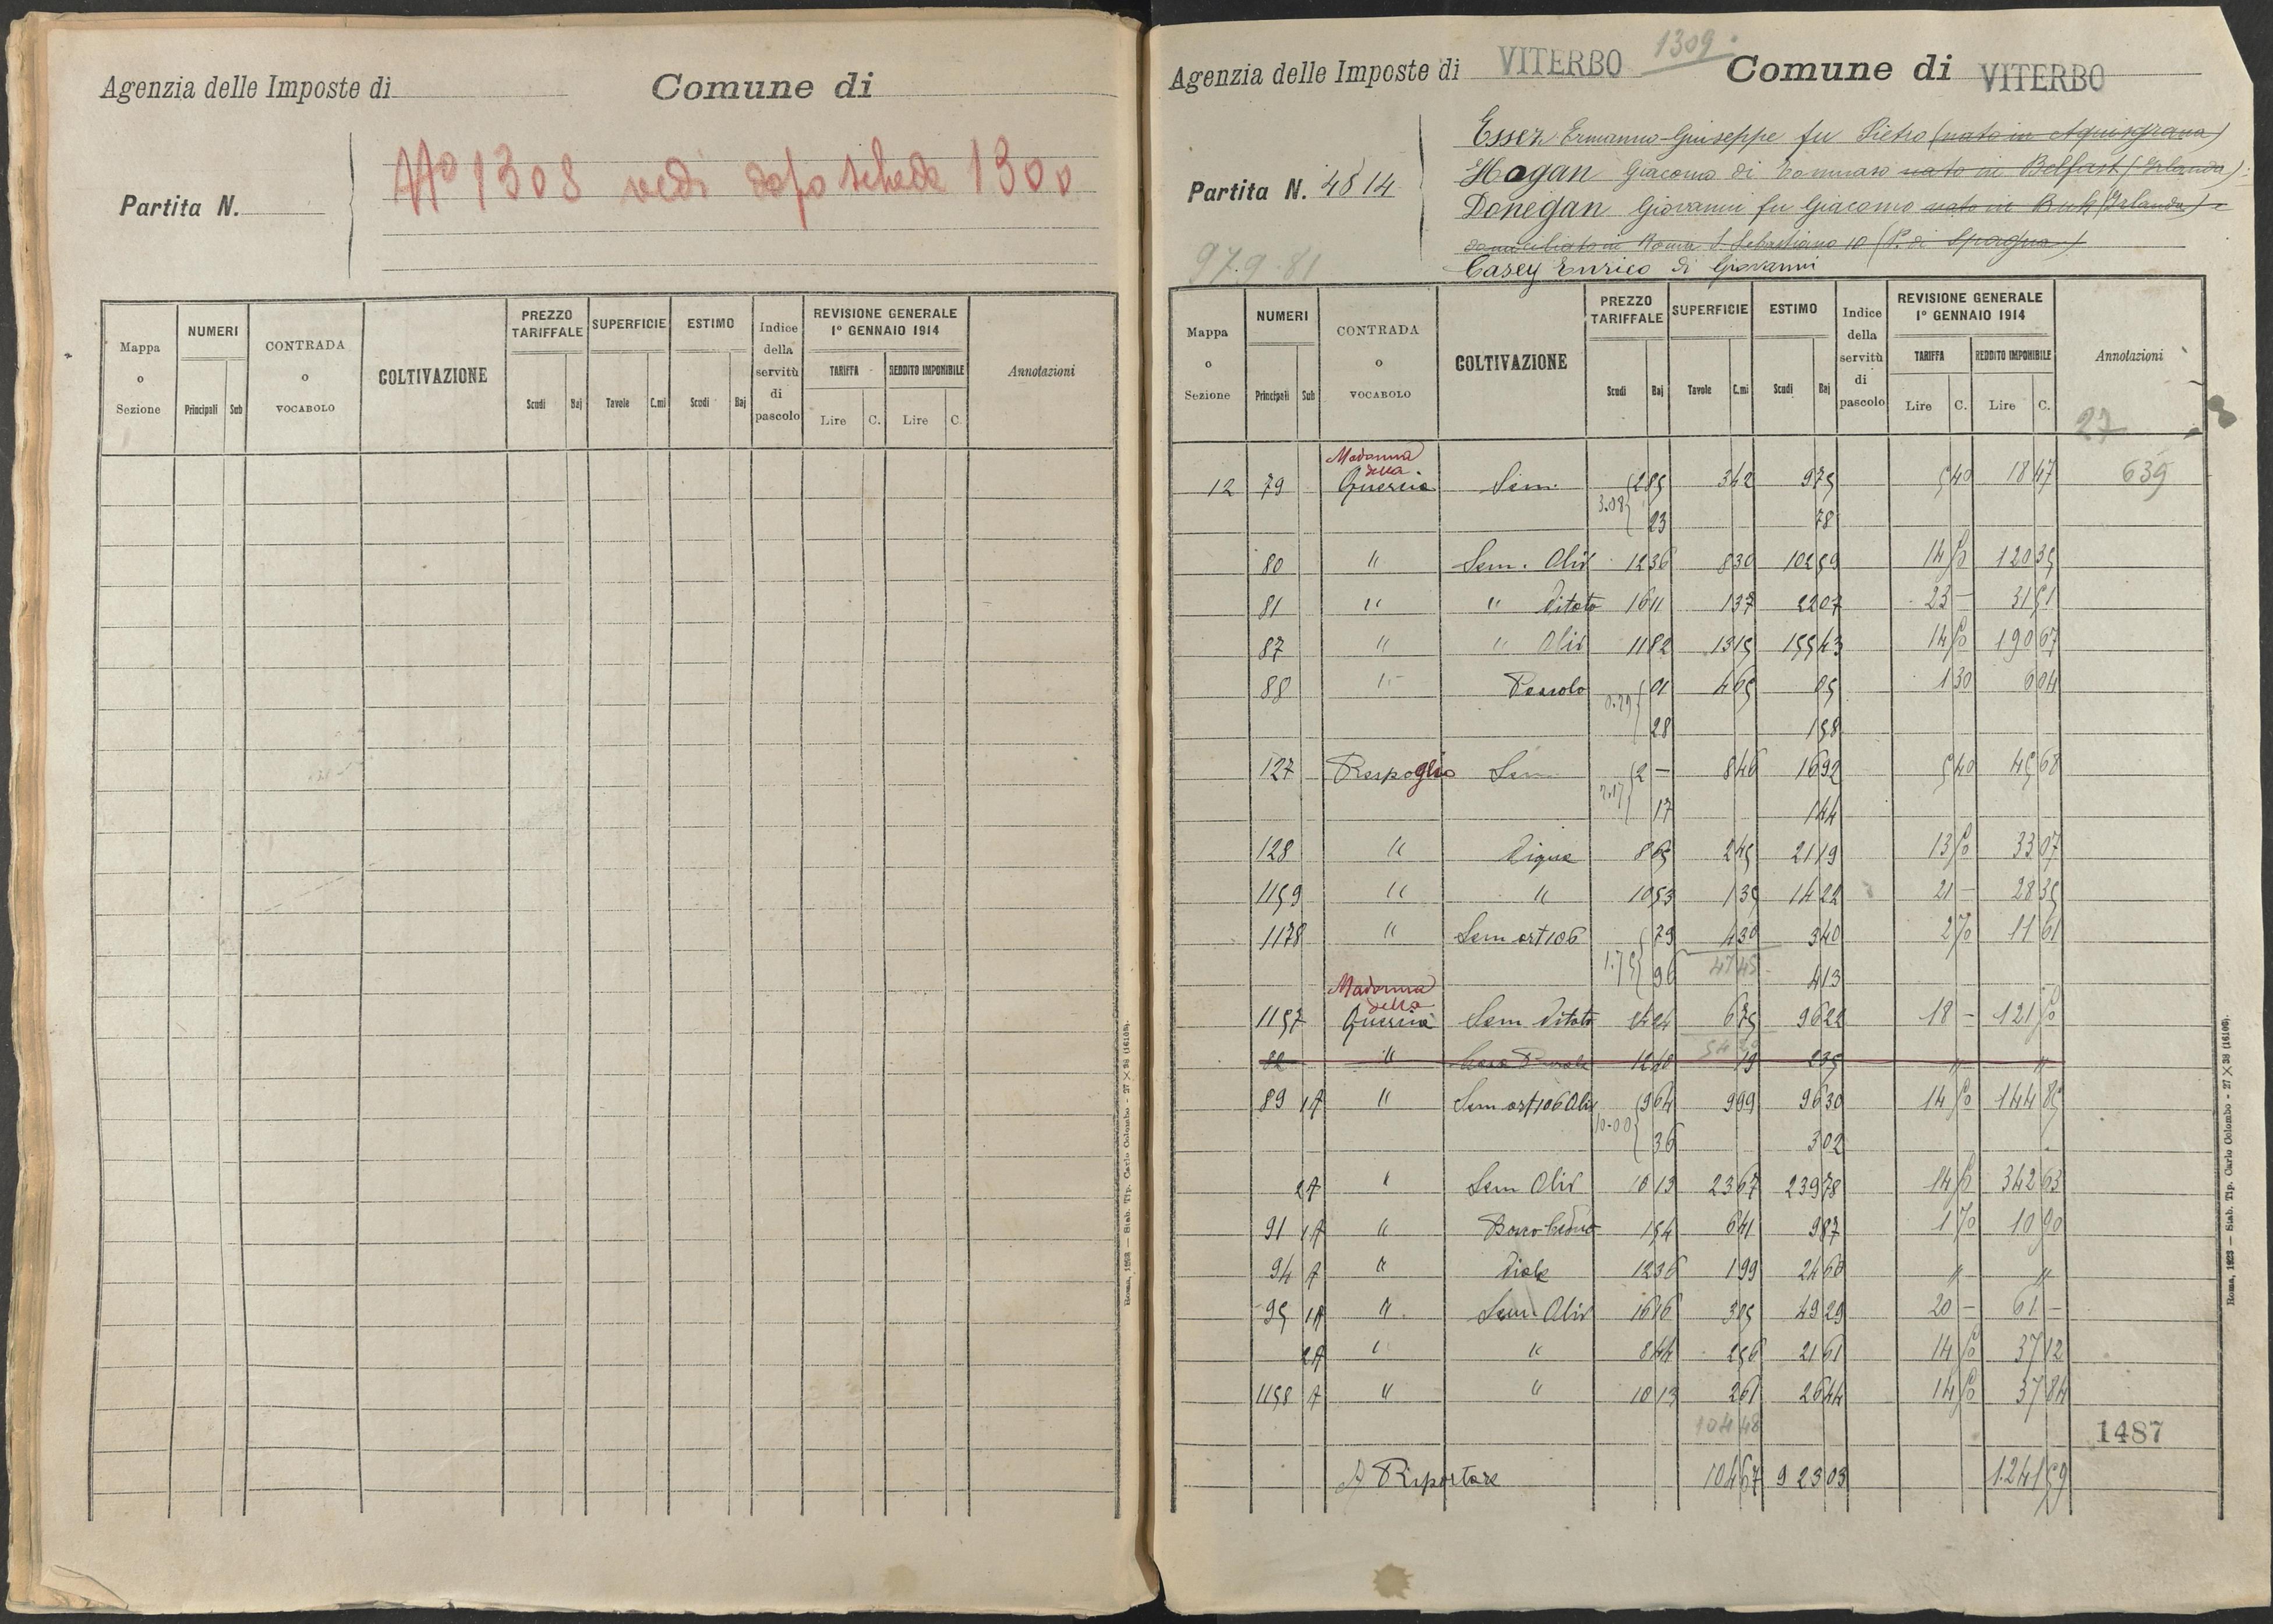 Agenzia delle Imposte di
Comune di
Partita N.
N° 1308 vedi dopo scheda 1300
Mappa o Sezione
NUMERI
Principali
Sub
CONTRADA o VOCABOLO
COLTIVAZIONE
PREZZO TARIFFALE
Scudi
Baj
SUPERFICIE
Tavole
C.mi
ESTIMO
Scudi
Baj
Indice della servitù di pascolo
REVISIONE GENERALE 1° GENNAIO 1914
TARIFFA
Lire
C.
REDDITO IMPONIBILE
Lire
C.
Annotazioni
Roma, 1923 — Stab. Tip. Carlo Colombo - 27 × 38 (16106).
1309
Agenzia delle Imposte di VITERBO
Comune di VITERBO
Partita N. 4814
97.9.81
Esser Ermanno-Giuseppe fu Pietro (nato in Aquisgrana)
Hogan Giacomo di Tommaso nato in Belfast (Irlanda)
Donegan Giovanni fu Giacomo nato in (Irlanda) e
domiciliato in Roma S. Sebastiano 10 (P. di Spagna)
Casey Enrico di Giovanni
Mappa o Sezione
NUMERI
Principali
Sub
CONTRADA o VOCABOLO
COLTIVAZIONE
PREZZO TARIFFALE
Scudi
Baj
SUPERFICIE
Tavole
C.mi
ESTIMO
Scudi
Baj
Indice della servitù di pascolo
REVISIONE GENERALE 1° GENNAIO 1914
TARIFFA
Lire
C.
REDDITO IMPONIBILE
Lire
C.
Annotazioni
27
12 79 Madonna della Quercia Sem. 2 85 3 42 9 75 5 40 18 47 639
3.08 23 78
80 " Sem. Oliv 12 36 8 30 102 59 14 50 120 35
81 " " Vitato 16 11 1 37 22 07 23 — 31 51
87 " " Oliv 11 82 13 15 155 43 14 50 190 67
88 " Pascolo 01 4 65 05 1 30 6 04
0.29 28 1 58
127 Respoglio Sem 2 — 8 46 16 92 5 40 45 68
2.17 17 1 44
128 " Vigna 8 65 2 45 21 19 13 50 33 07
1159 " " 10 53 1 35 14 22 21 — 28 35
1178 " Sem art 106 79 4 30 3 40 2 70 11 61
1.75 96 47 45 4 13
1157 Madonna della Quercia Sem Vitato 14 24 6 75 96 22 18 — 121 50
82 " Casa Rurale 12 40 19 2 35 " "
89 1A " Sem art 106 Oliv 9 64 9 99 96 30 14 50 144 85
10.00 36 3 02
2A " Sem Oliv 10 13 23 67 239 78 14 50 342 63
91 1A " Bosco Ceduo 1 54 6 41 9 87 1 70 10 90
94 A " Viale 12 36 1 99 24 60 " "
95 1A " Sem. Oliv 16 16 3 05 49 29 20 — 61 —
2A " " 8 44 2 56 21 61 14 50 37 12
1158 A " " 10 13 2 61 26 44 14 50 37 84
104 48
1487
A Riportare 104 67 923 03 1241 59
Roma, 1923 — Stab. Tip. Carlo Colombo - 27 × 38 (16106).